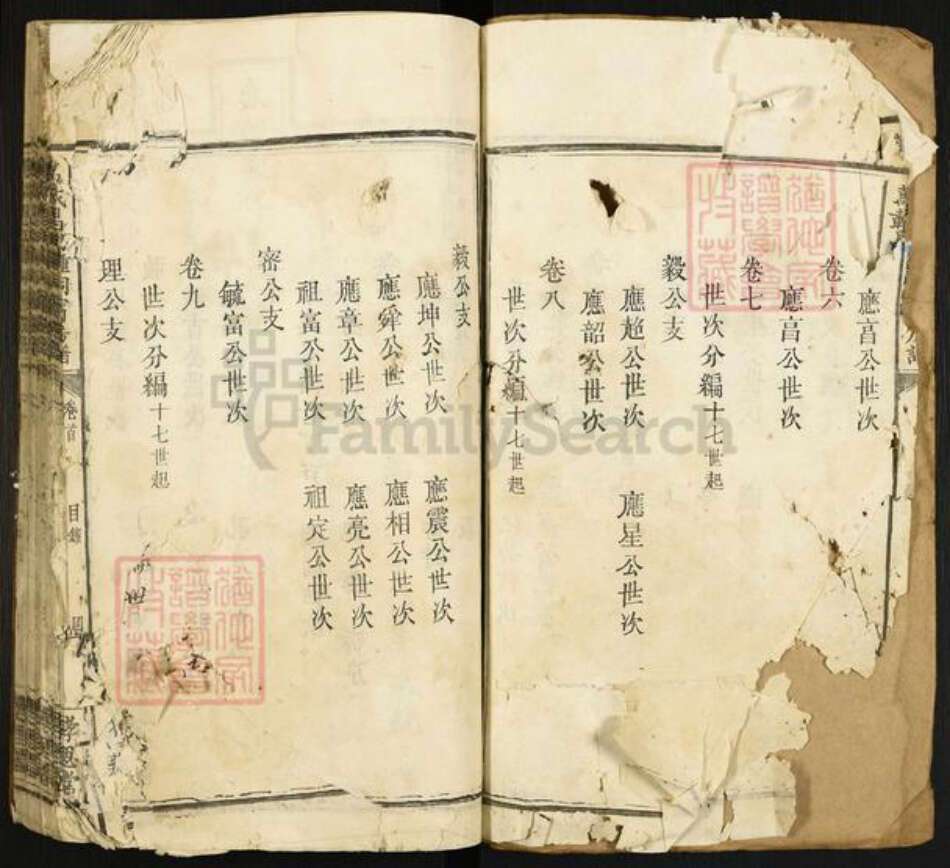 應亯公世次
卷六
應亯公世次
卷七
世次分編十七世起
毅公支
應趍公世次 應星公世次
應韶公世次
卷八
世次分編十七世起
毅公支
應坤公世次 應震公世次
應舜公世次 應相公世次
應章公世次 應亮公世次
祖富公世次 祖定公世次
密公支
毓富公世次
卷九
世次分編十七世起
理公支
卷首 目錄
猶他家譜學會收藏
猶他家譜學會收藏
FamilySearch